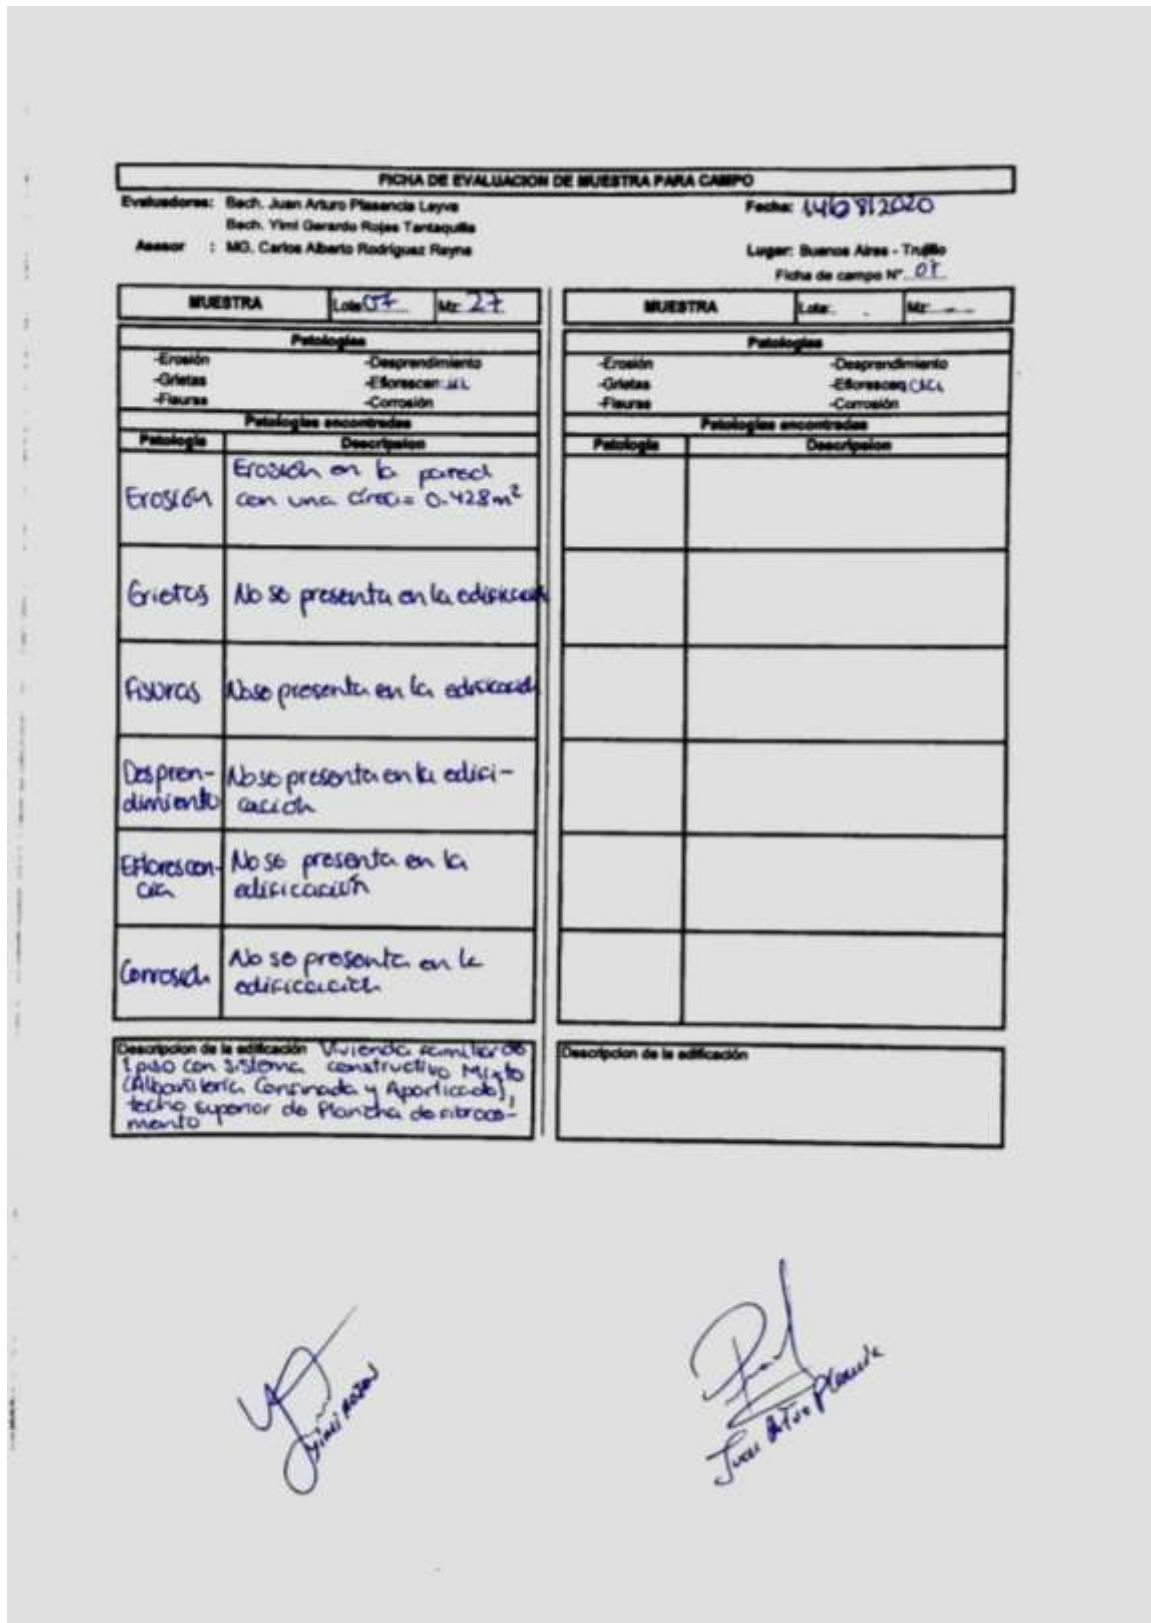 FICHA DE EVALUACION DE MUESTRA PARA CAMPO
Evaluadores: Bach. Juan Arturo Plasencia Leyva
Fecha: 14/08/2020
Bach. Yimi Gerardo Rojas Tantaquilla
Asesor : MG. Carlos Alberto Rodríguez Reyna
Lugar: Buenos Aires - Trujillo
Ficha de campo N° 07
MUESTRA Lote 07 Mz: 27
Patologías
-Erosión -Desprendimiento
-Grietas -Eflorescencia
-Fisuras -Corrosión
Patologías encontradas
Patología Descripsion
Erosión
Erosión en la pared
con una área= 0.428m²
Grietas No se presenta en la edificación
Fisuras No se presenta en la edificación
Despren-
dimiento
No se presenta en la edifi-
cación
Eflorescen-
cia
No se presenta en la
edificación
Corrosión
No se presenta en la
edificación
Descripcion de la edificación Vivienda familiar de
1 piso con sistema constructivo Mixto
(Albañilería Confinada y Aporticado),
techo superior de Plancha de fibroce-
mento
MUESTRA Lote: Mz:
Patologías
-Erosión -Desprendimiento
-Grietas -Eflorescencia
-Fisuras -Corrosión
Patologías encontradas
Patología Descripsion
Descripcion de la edificación
Yimi Rojas
Juan Arturo Plasencia